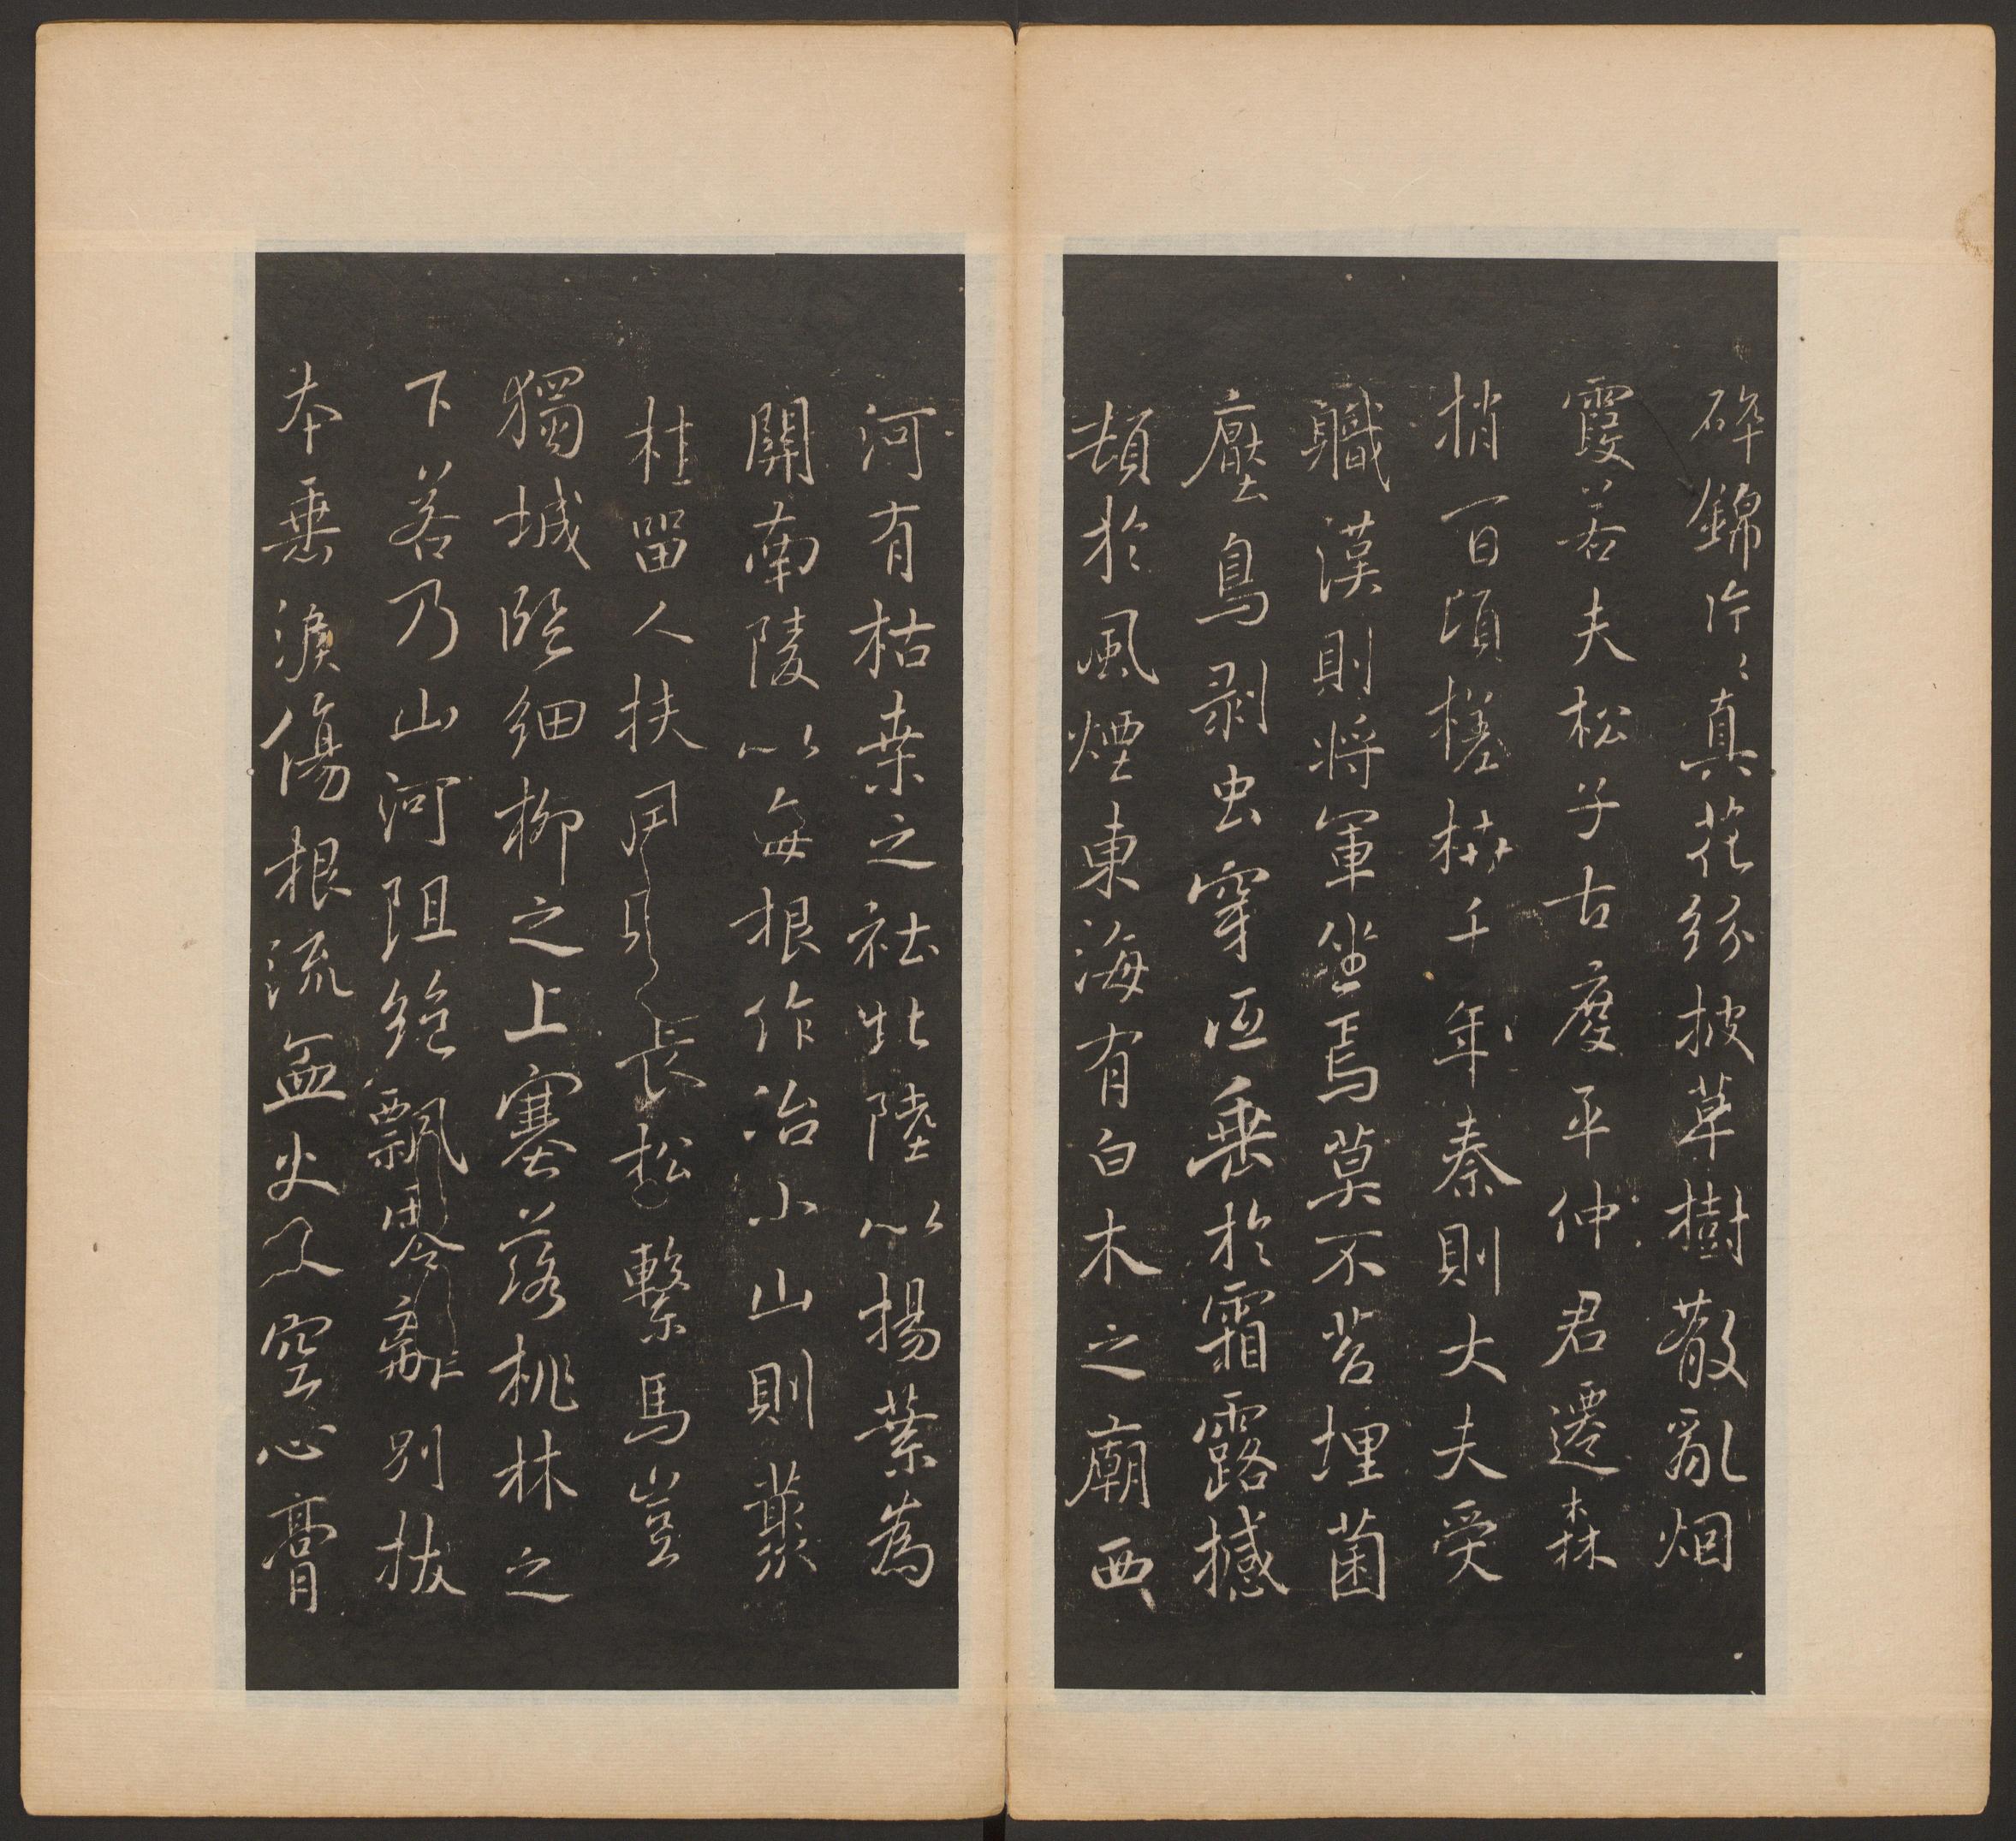 碎錦片〻真花紛披草樹散亂烟
霞若夫松子古度平仲君遷森
梢百頃槎枿千年秦則大夫受
軄漢則將軍坐焉莫不苔埋菌
壓鳥剥虫穿低垂於霜露撼
頓於風煙東海有白木之廟西
河有枯桒之社北陸以楊葉為
關南陵以每根作冶小山則叢
桂留人扶風長松繫馬豈
獨城臨細柳之上塞落桃林之
下若乃山河阻絶飄零離別拔
本垂淚傷根流血火入空心膏